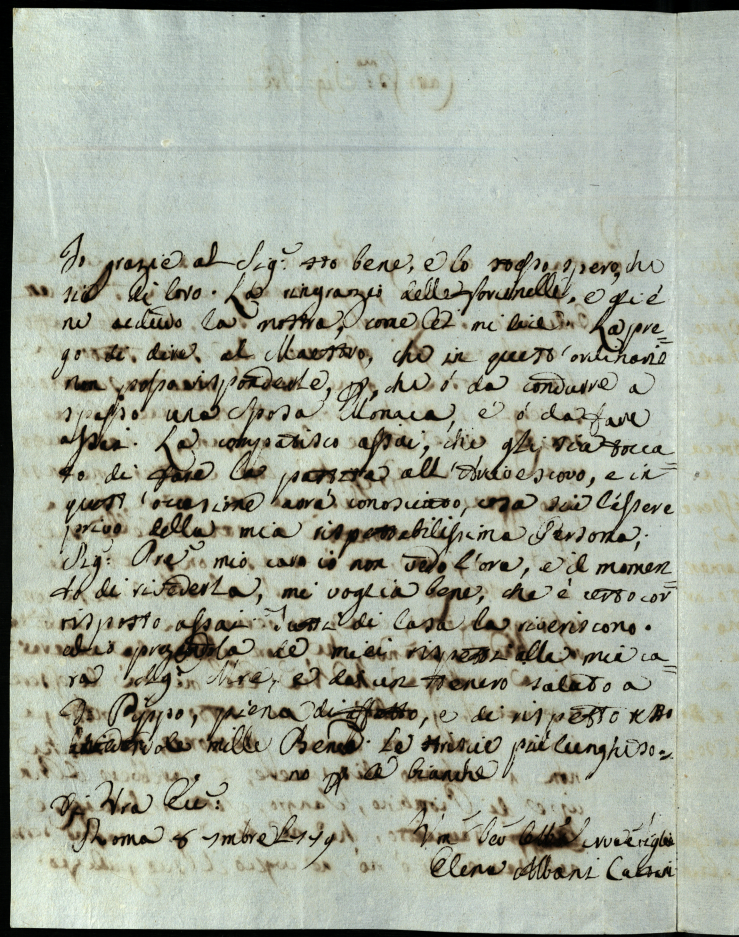 Io grazie al Sig.r sto bene, e lo stesso spero, che
sia di loro. La ringrazio delle forcinelle, e gli è
ne acludo la mostra, come Lei mi dice. La pre=
go di dire al Maestro, che in quest'ordinario
non posso risponderle, p, che ò da condurre a
spasso una Sposa Monaca, e ò da fare
assai. La compatisco assai, che gli sia tocca=
to di fare la all'Arcivescovo, e in
quest'occasione avrà conosciuto, cosa sia l'essere
privo della mia rispettabilissima Persona,
Sig.r Pre mio caro io non vedo l'ora, e il momen=
to di rivederla, mi voglia bene, che è certo cor
risposto assai Tutti di casa la riveriscono.
de miei rispetti alla mia ca=
ra Sig.a Mre, e dia un tenero saluto a
D Pippo, piena di affetto, e di rispetto
mille Bene. Le striscie più lunghe so=
no p le bianche
Di Vra Ecc:
Roma 8 1779
Elena Albani Castri